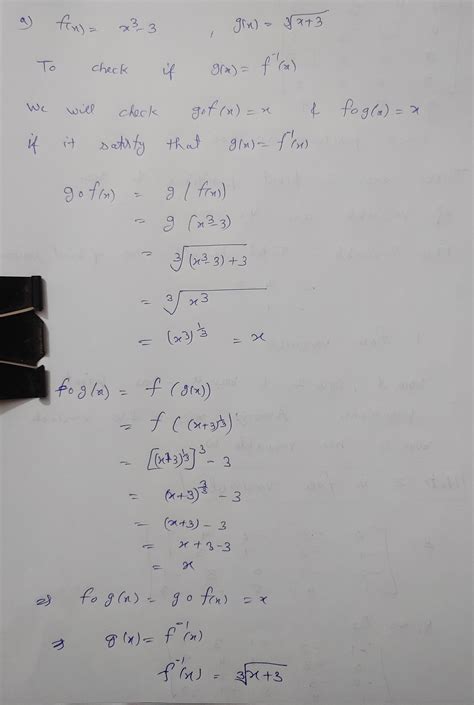 a) f(x) = x³-3 , g(x) = ∛x+3
To check if g(x) = f⁻¹(x)
We will check gof(x) = x & fog(x) = x
if it satisfy that g(x) = f⁻¹(x)
gof(x) = g(f(x))
= g(x³-3)
= ∛(x³-3)+3
= ∛x³
= (x³)^1/3 = x
fog(x) = f(g(x))
= f((x+3)^1/3)
= [(x+3)^1/3]³ - 3
= (x+3)^3/3 - 3
= (x+3) - 3
= x+3-3
= x
⇒ fog(x) = gof(x) = x
⇒ g(x) = f⁻¹(x)
f⁻¹(x) = ∛x+3